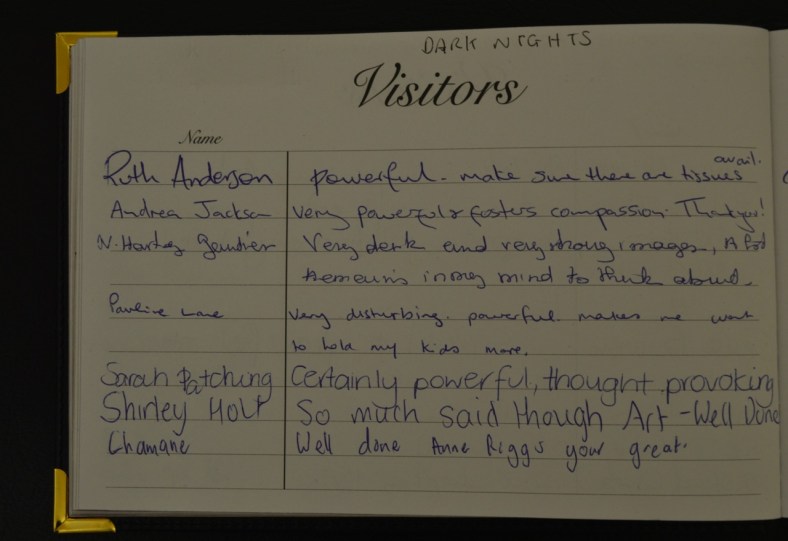 DARK NIGHTS
Visitors
Name
Ruth Anderson powerful. make sure there are tissues avail.
Andrea Jackson Very powerful & fosters compassion. Thankyou!
N. Very dark and very strong images, A lot
remains in my mind to think about.
Pauline Lane Very disturbing. powerful. makes me want
to hold my kids more.
Sarah Patching Certainly powerful, thought provoking
Shirley Holt So much said though Art - Well Done
Chamane Well done Anne Riggs your great.